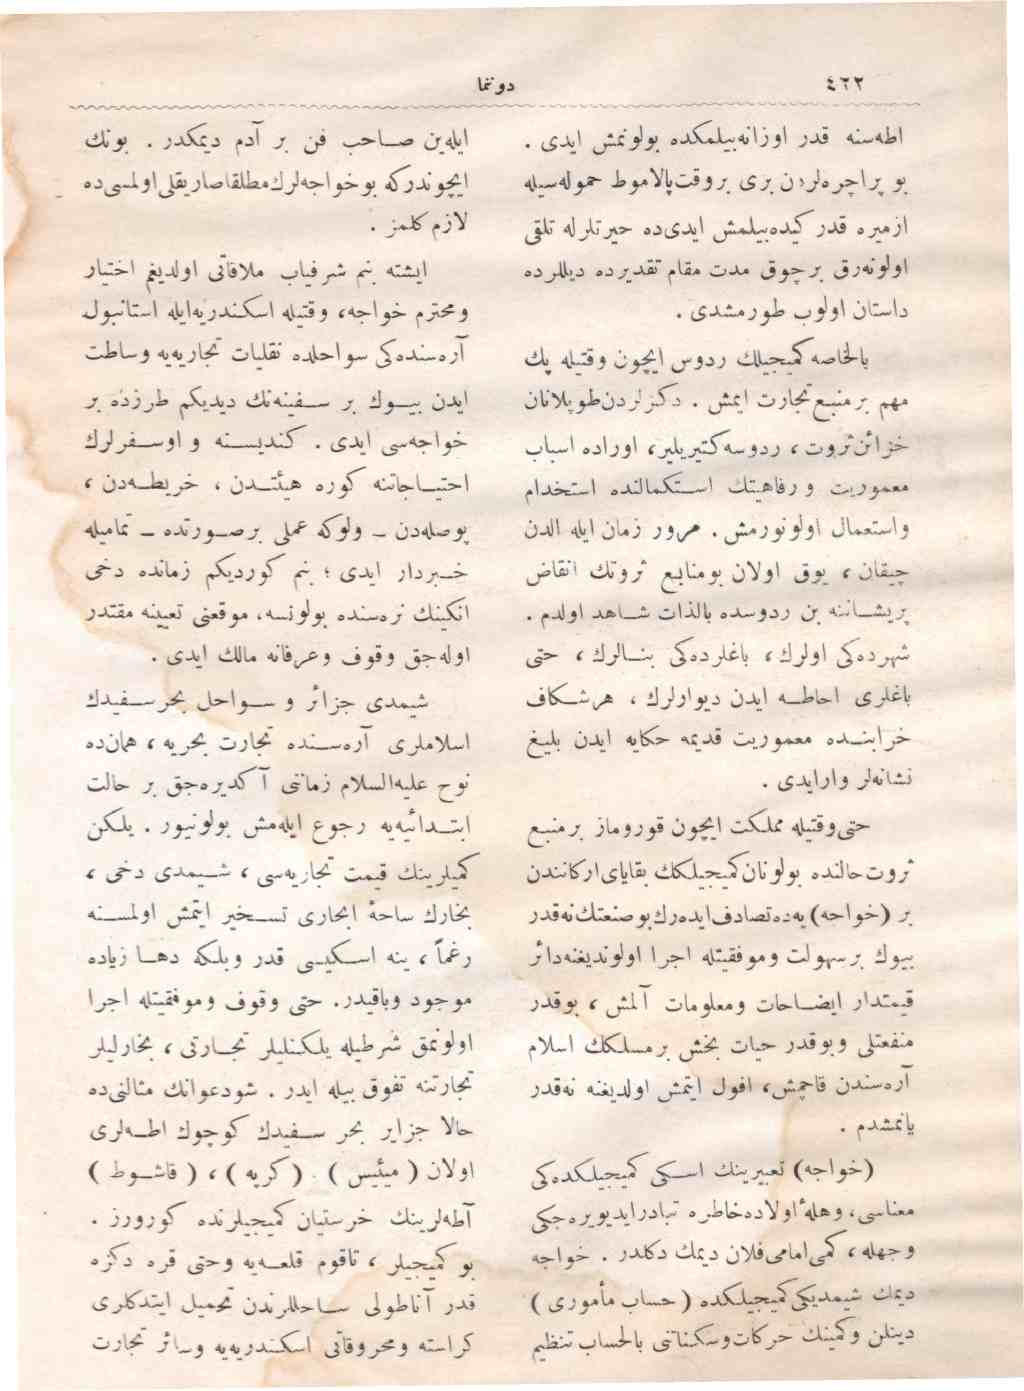 ٤٢٢
دوننما
اطه‌سنه قدر اوزانه‌بیلمكده بولونمش ایدی .
بو پراچره‌لردن بری بروقت پالاموط حموله‌سیله
ازمیره قدر كیده‌بیلمش ایدی‌ده حیرتلرله تلقی
اولونه‌رق برچوق مدت مقام تقدیرده دیللرده
داستان اولوب طورمشدی .
بالخاصه كمیجیلك ردوس ایچون وقتیله پك
مهم برمنبع تجارت ایمش . دكزلردن طوپلانان
خزائن ثروت ، ردوسه كتیریلیر، اوراده اسباب
معموریت و رفاهیتك استكمالنده استخدام
واستعمال اولونورمش . مرور زمان ایله الدن
چیقان ، یوق اولان بومنابع ثروتك انقاض
پریشاننه بن ردوسده بالذات شاهد اولدم .
شهرده‌كی اولرك، باغلرده‌كی بنالرك ، حتی
باغلری احاطه ایدن دیوارلرك ، هرشكاف
خرابنده معموریت قدیمه حكایه ایدن بلیغ
نشانه‌لر وارایدی .
حتی وقتیله مملكت ایچون قوروماز برمنبع
ثروت حالنده بولونان كمیجیلكك بقایای اركانندن
بر (خواجه) یه‌ده تصادف ایده‌رك بو صنعتك نه‌قدر
بیوك برسهولت وموفقیتله اجرا اولوندیغنه دائر
قیمتدار ایضاحات ومعلومات آلمش ، بوقدر
منفعتلی وبوقدر حیات بخش برمسلكك اسلام
آره‌سندن قاچمش، افول ایتمش اولدیغنه نه‌قدر
یانمشدم .
(خواجه) تعبیرینك اسكی كمیجیلكده‌كی
معناسی، وهلهٔ اولاده خاطره تبادر ایدیویره‌جكی
وجهله، كمی امامی فلان دیمك دكلدر . خواجه
دیمك شیمدیكی كمیجیلكده (حساب مأموری)
دینلن وكمینك حركات وسكناتنی بالحساب تنظیم
ایله‌ین صاحب فن بر آدم دیمكدر . بونك
ایچوندركه بو خواجه‌لرك مطلقا صاریقلی اولمسی‌ده
لازم كلمز .
ایشته بنم شرفیاب ملاقاتی اولدیغم اختیار
ومحترم خواجه، وقتیله اسكندریه‌ایله استانبول
آره‌سنده‌كی سواحلده نقلیات تجاریه‌یه وساطت
ایدن بیوك بر سفینه‌نك دیدیكم طرزده بر
خواجه‌سی ایدی . كندیسنه و اوسفرلرك
احتیاجاتنه كوره هیئتدن ، خریطه‌دن ،
پوصله‌دن – ولوكه عملی برصورتده – تمامیله
خبردار ایدی ؛ بنم كوردیكم زمانده دخی
انكینك نره‌سنده بولونسه، موقعنی تعیینه مقتدر
اوله‌جق وقوف وعرفانه مالك ایدی .
شیمدی جزائر و سواحل بحرسفیدك
اسلاملری آره‌سنده تجارت بحریه ، همان‌ده
نوح علیه‌السلام زماننی آكدیره‌جق بر حالت
ابتدائیه‌یه رجوع ایله‌مش بولونیور . یلكن
كمیلرینك قیمت تجاریه‌سی ، شیمدی دخی ،
بخارك ساحهٔ ابحاری تسخیر ایتمش اولمسنه
رغماً ، ینه اسكیسی قدر وبلكه دها زیاده
موجود وباقیدر. حتی وقوف وموفقیتله اجرا
اولونمق شرطیله یلكنلیلر تجارتی ، بخارلیلر
تجارتنه تفوق بیله ایدر . شودعوانك مثالنی‌ده
حالا جزایر بحر سفیدك كوچوك اطه‌لری
اولان (میئیس) . (كرپه) ، (قاشوط)
آطه‌لرینك خرستیان كمیجیلرنده كورورز .
بو كمیجیلر ، تاقوم قلعه‌یه وحتی قره دكزه
قدر آناطولی ساحللرندن تحمیل ایتدكلری
كراسته ومحروقاتی اسكندریه‌یه وسائر تجارت